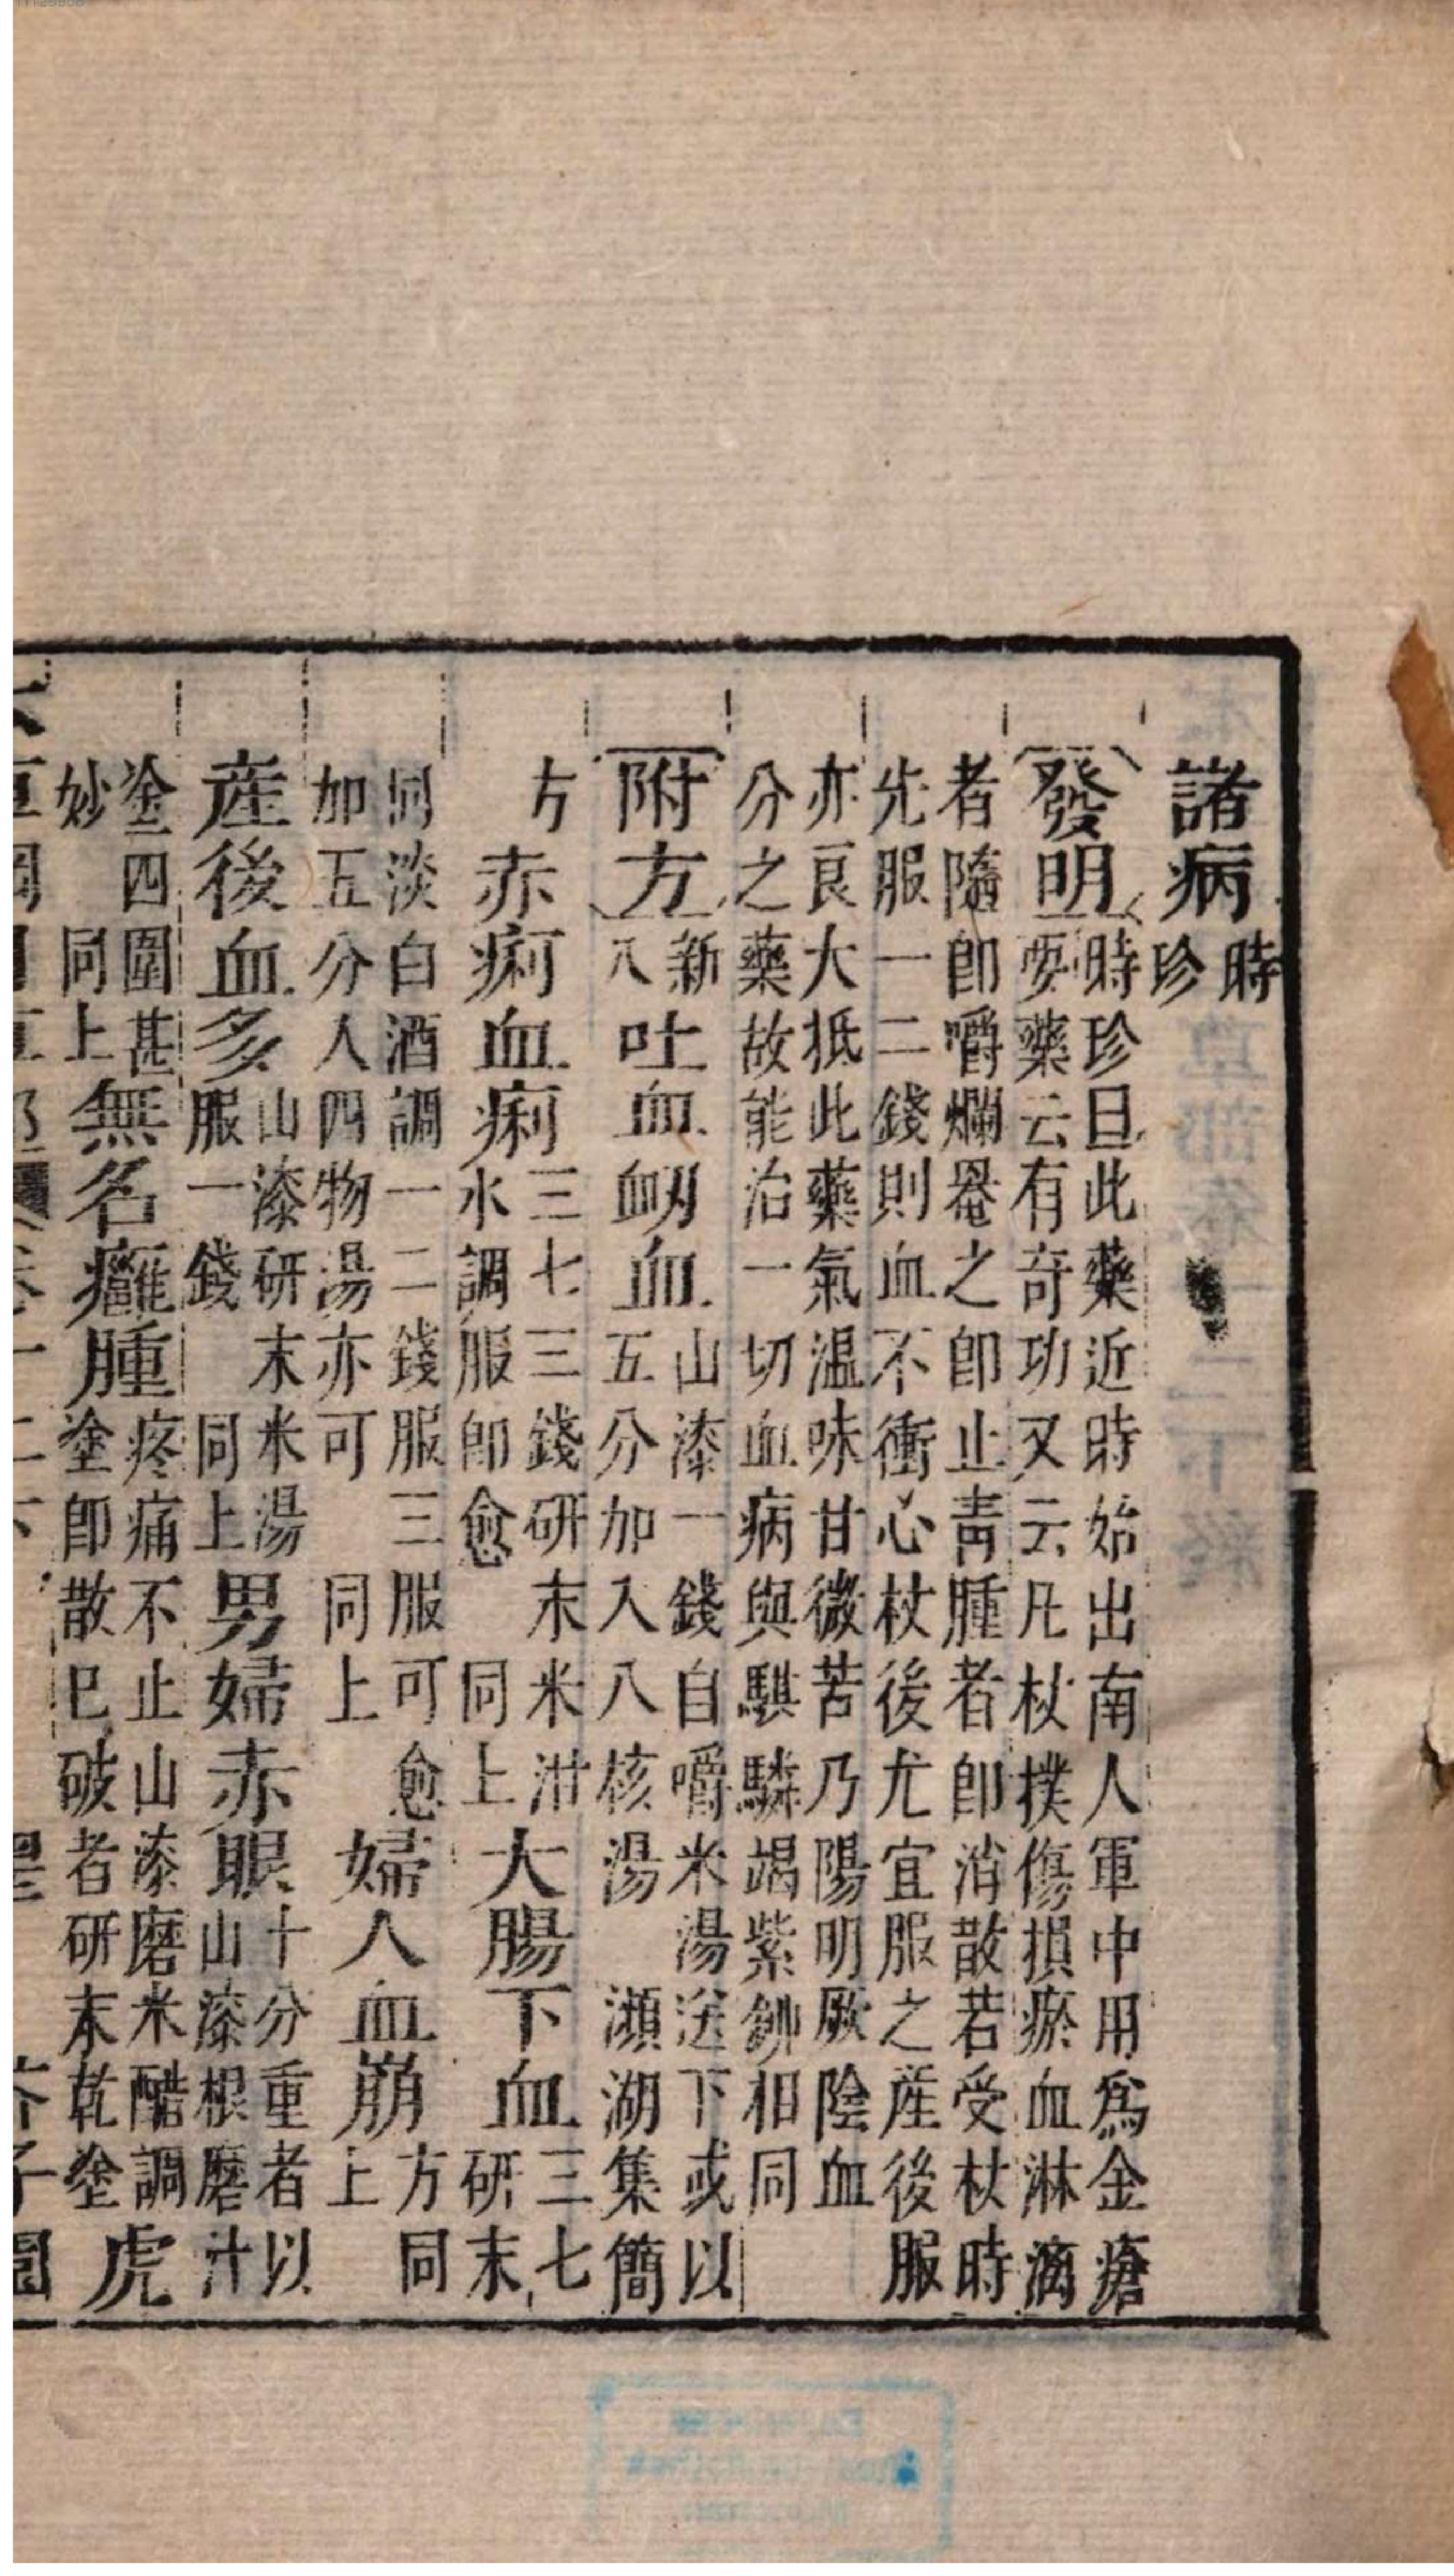 諸病時珍
發明時珍曰此藥近時始出南人軍中用爲金瘡
要藥云有奇功又云凡杖撲傷損瘀血淋漓
者隨即嚼爛罨之即止青腫者即消散若受杖時
先服一二錢則血不衝心杖後尤宜服之産後服
亦良大抵此藥氣温味甘微苦乃陽明厥陰血
分之藥故能治一切血病與騏驎竭紫鉚相同
附方新八吐血衂血山漆一錢自嚼米湯送下或以五分加入八核湯瀕湖集簡
方赤痢血痢三七三錢研末米泔水調服即愈同上大腸下血三七研末
同淡白酒調一二錢服三服可愈加五分人四物湯亦可同上婦人血崩方同上
産後血多山漆研末米湯服一錢同上男婦赤眼十分重者以山漆根磨汁
塗四圍甚妙同上無名癰腫疼痛不止山漆磨米醋調塗即散已破者研末乾塗虎